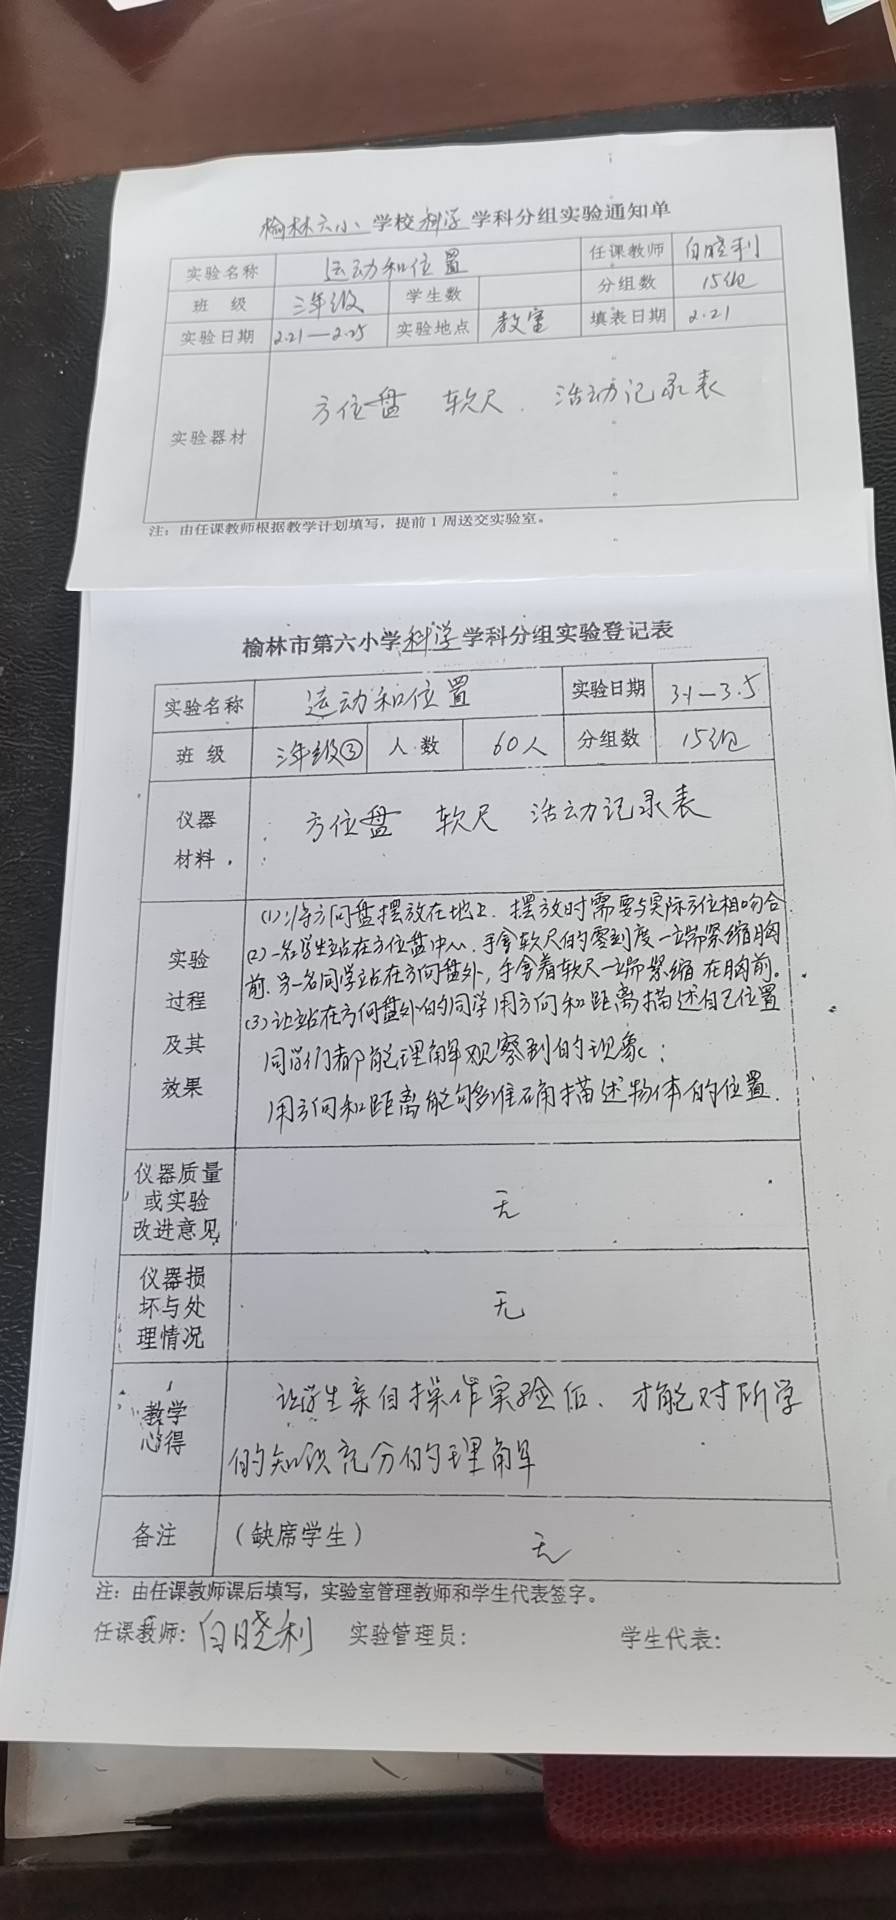 榆林六小 学校 科学 学科分组实验通知单
实验名称 运动和位置 任课教师 白晓利
班 级 三年级 学生数 分组数 15组
实验日期 2.21—2.25 实验地点 教室 填表日期 2.21
实验器材 方位盘 软尺 活动记录表
注：由任课教师根据教学计划填写，提前1周送交实验室。
榆林市第六小学 科学 学科分组实验登记表
实验名称 运动和位置 实验日期 3.1—3.5
班 级 三年级③ 人 数 60人 分组数 15组
仪器
材料
方位盘 软尺 活动记录表
实验
过程
及其
效果
(1)将方向盘摆放在地上．摆放时需要与实际方位相吻合
(2)一名学生站在方位盘中心．手拿软尺的零刻度一端紧缩胸
前．另一名同学站在方向盘外，手拿着软尺一端紧缩在胸前。
(3)让站在方向盘外的同学用方向和距离描述自己位置
同学们都能理解观察到的现象；
用方向和距离能够准确描述物体的位置．
仪器质量
或实验
改进意见
无
仪器损
坏与处
理情况
无
教学
心得
让学生亲自操作实验后、才能对所学
的知识充分的理解
备注 （缺席学生） 无
注：由任课教师课后填写，实验室管理教师和学生代表签字。
任课教师：白晓利 实验管理员： 学生代表：